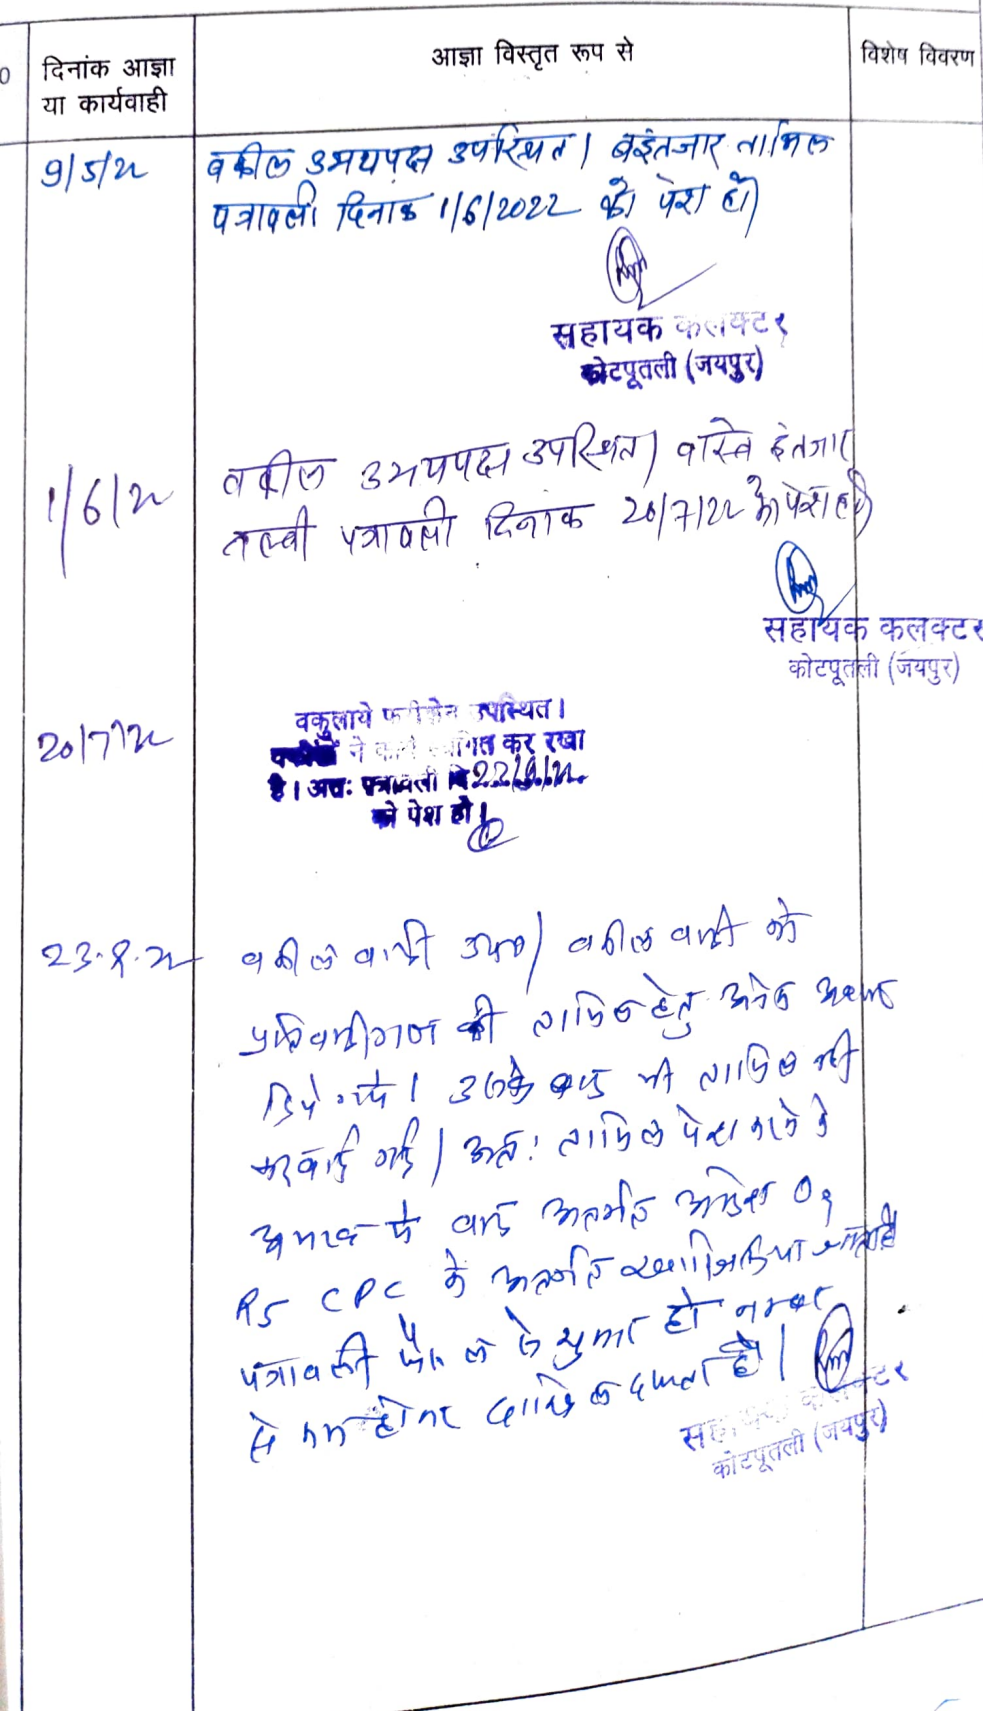 दिनांक आज्ञा
या कार्यवाही
आज्ञा विस्तृत रूप से
विशेष विवरण
9/5/22
वकील उभयपक्ष उपस्थित। बइंतजार तामिल
पत्रावली दिनांक 1/6/2022 को पेश हो।
सहायक कलक्टर
कोटपूतली (जयपुर)
1/6/22
वकील उभयपक्ष उपस्थित। वास्ते इंतजार
तलबी पत्रावली दिनांक 20/7/22 को पेश हो।
सहायक कलक्टर
कोटपूतली (जयपुर)
20/7/22
वकुलाये फरीकेन उपस्थित।
ने कार्य स्थगित कर रखा
है। अतः पत्रावली दि 22/9/22
को पेश हो।
23.9.22
वकील वादी उप0। वकील वादी को
प्रतिवादीगण की तामिल हेतु अनेक अवसर
दिये गये। उसके बाद भी तामिल नहीं
करवाई गई। अतः तामिल पेश करने के
अभाव में वाद अन्तर्गत आदेश 09
R5 CPC के अन्तर्गत खारिज किया जाता है
पत्रावली फैसल शुमार हो नम्बर
से कम होकर दाखिल दफ्तर हो।
सहायक कलक्टर
कोटपूतली (जयपुर)